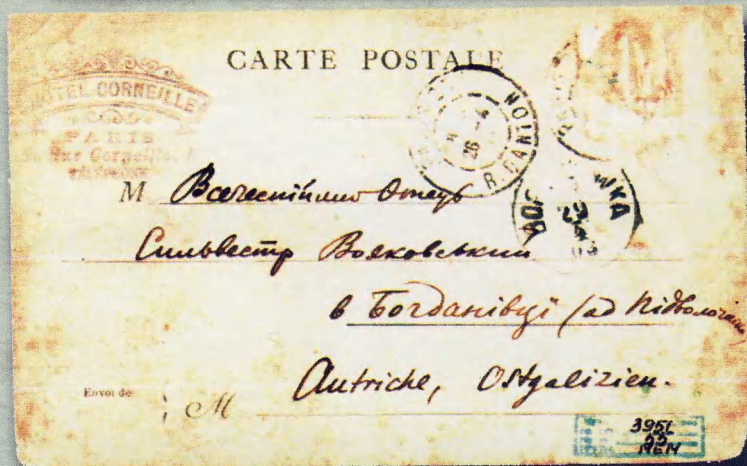 CARTE POSTALE
HOTEL CORNEILLE
PARIS
Rue Corneille
R. DANTON
26 -4
M Всечестнійший Отець
Сильвестр Вояковський
в Богданівці (ad Підволочиськ
Autriche, Ostgalizien.
Envoi de
M
3951